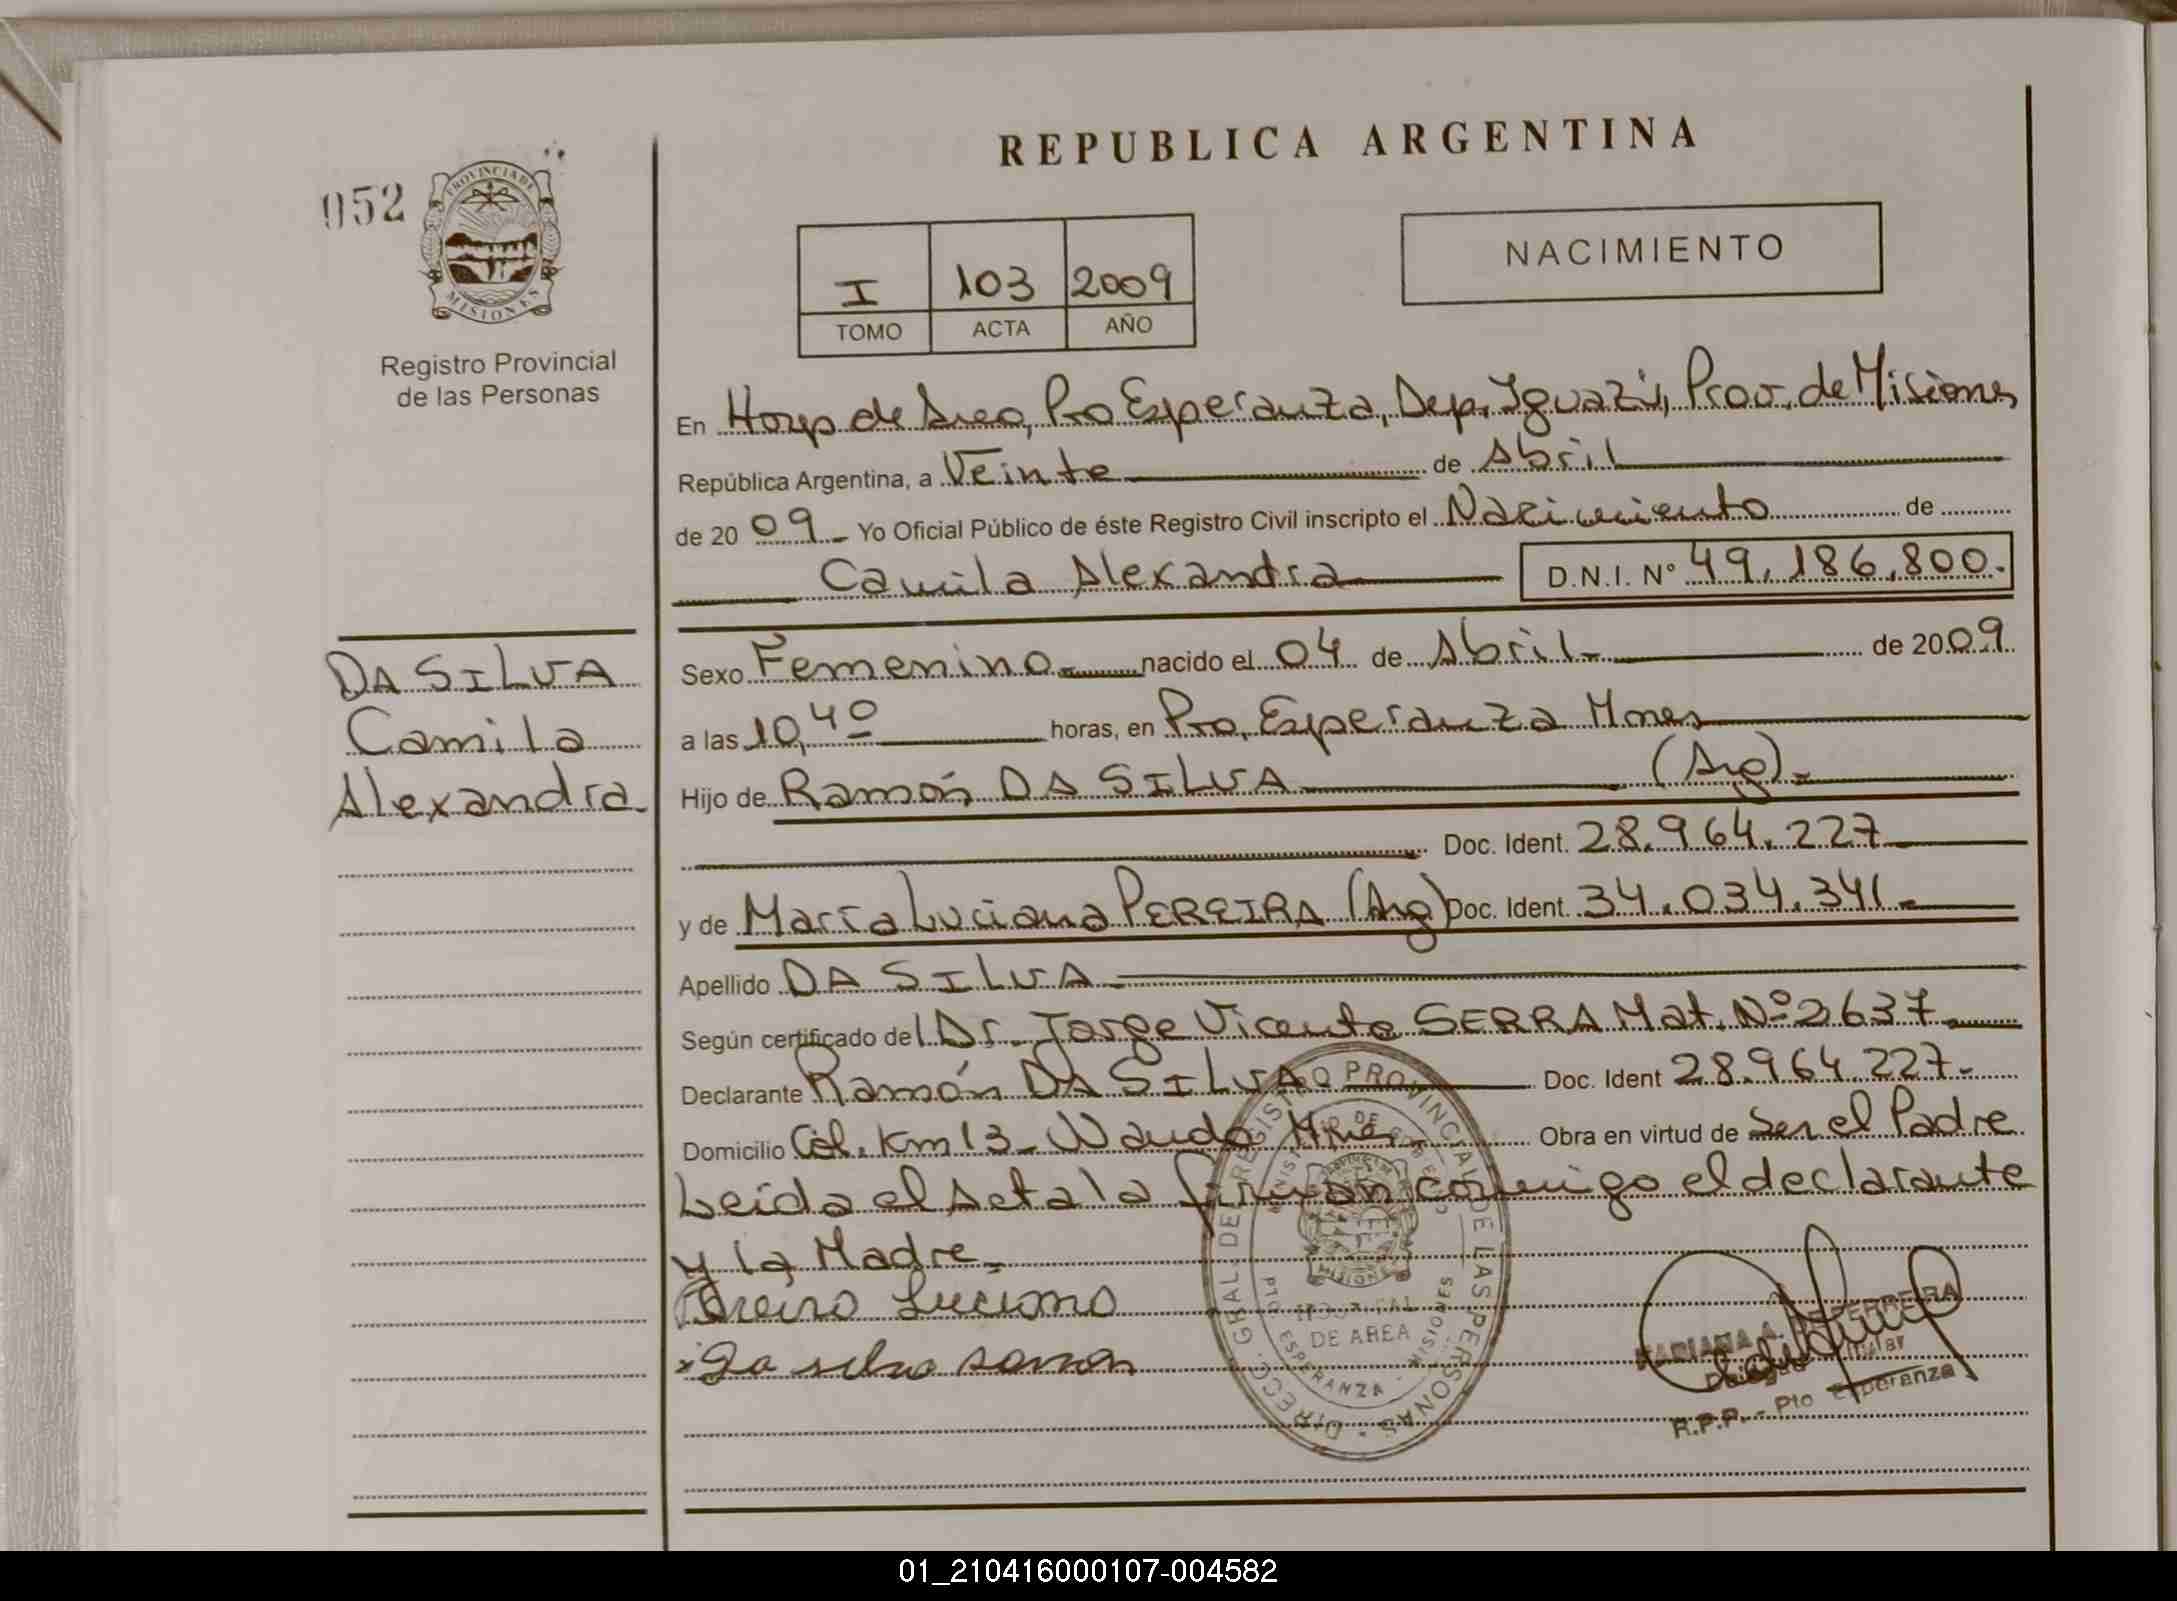 REPUBLICA ARGENTINA
052
PROVINCIA DE
MISIONES
Registro Provincial
de las Personas
I 103 2009
TOMO ACTA AÑO
NACIMIENTO
En Hosp de Area, Pto Esperanza, Dep. Iguazú, Prov. de Misiones
República Argentina, a Veinte de Abril
de 2009 Yo Oficial Público de éste Registro Civil inscripto el Nacimiento de
Camila Alexandra D.N.I. Nº 49.186.800.
DA SILVA
Camila
Alexandra
Sexo Femenino nacido el 04 de Abril de 2009
a las 10,40 horas, en Pto. Esperanza Mnes
Hijo de Ramón DA SILVA (Arg)
Doc. Ident. 28.964.227
y de María Luciana PEREIRA (Arg) Doc. Ident. 34.034.341.
Apellido DA SILVA
Según certificado del Dr. Jorge Vicente SERRA Mat. Nº 2637
Declarante Ramón DA SILVA Doc. Ident 28.964.227
Domicilio Col. Km 13 - Wanda Mnes Obra en virtud de Ser el Padre
Leida el Acta la firman conmigo el declarante
y la Madre
Pereira Luciana
Da silva ramon
DIRECC. GRAL. DE REGISTRO PROVINCIAL DE LAS PERSONAS
HOSPITAL
DE AREA
ESPERANZA - MISIONES
MARIANA A. DE FERREIRA
R.P.P. - Pto Esperanza
01_210416000107-004582